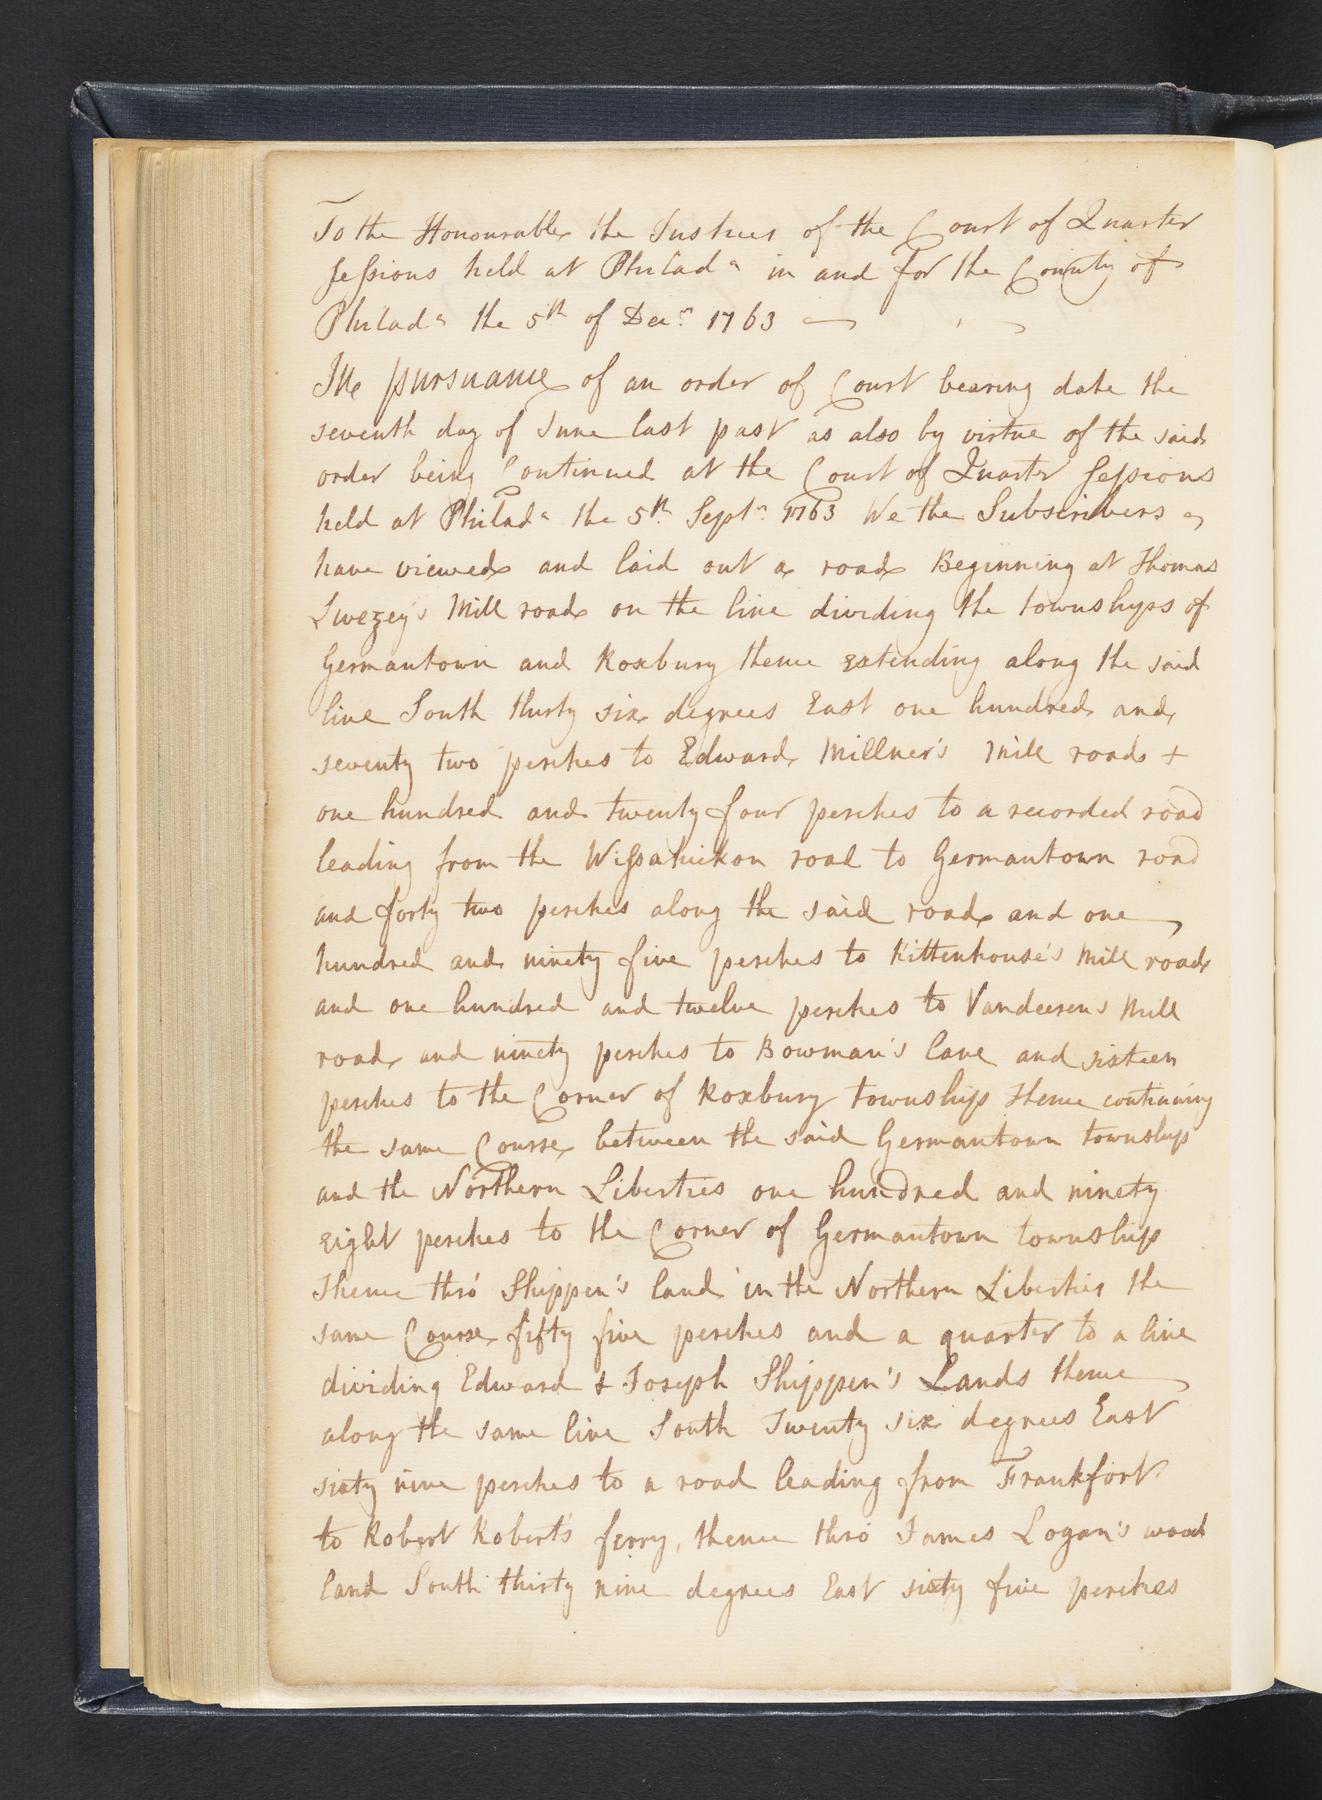 To the Honourable the Justices of the Court of Quarter
Sessions held at Philada in and for the County of
Philada the 5th of Decr 1763
In pursuance of an order of Court bearing date the
seventh day of June last past as also by virtue of the said
order being Continued at the Court of Quarter Sessions
held at Philada the 5th Septr 1763 We the Subscribers
have viewed and laid out a road Beginning at Thomas
Livezey's Mill road on the line dividing the townships of
Germantown and Roxbury thence extending along the said
line South thirty six degrees East one hundred and
seventy two perches to Edward Millner's Mill road +
one hundred and twenty four perches to a recorded road
leading from the Wissahickon road to Germantown road
and forty two perches along the said road and one
hundred and ninety five perches to Rittenhouse's Mill road
and one hundred and twelve perches to Vandeerens Mill
road and ninety perches to Bowman's lane and sixteen
perches to the Corner of Roxbury township Thence continuing
the same Course between the said Germantown township
and the Northern Liberties one hundred and ninety
eight perches to the Corner of Germantown township
Thence thro' Shippen's land in the Northern Liberties the
same Course fifty five perches and a quarter to a line
dividing Edward & Joseph Shippen's Lands thence
along the same line South Twenty six degrees East
sixty nine perches to a road leading from Frankfort
to Robert Robert's ferry, thence thro' James Logan's wood
land South thirty nine degrees East sixty five perches